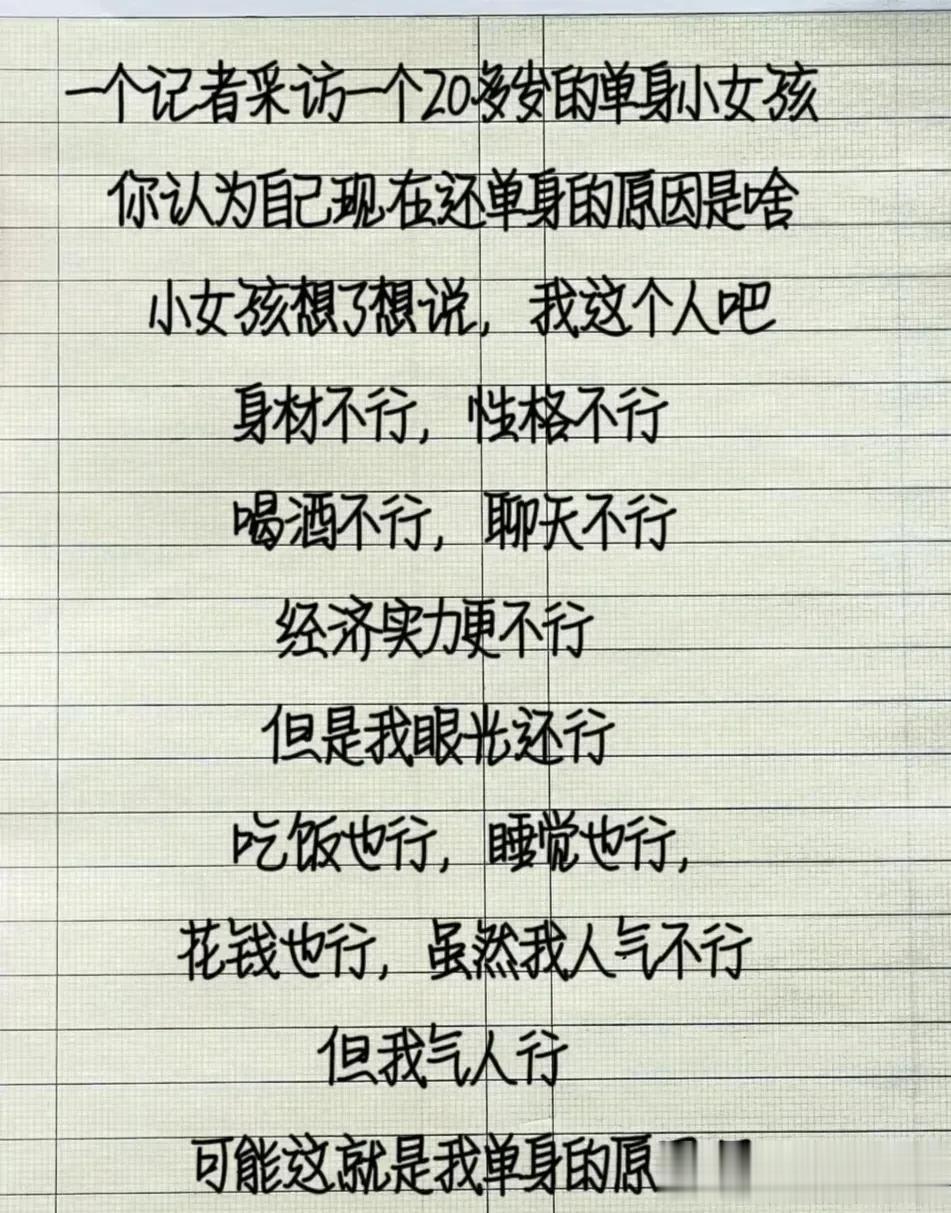 一个记者采访一个20多岁的单身小女孩
你认为自己现在还单身的原因是啥
小女孩想了想说，我这个人吧
身材不行，性格不行
喝酒不行，聊天不行
经济实力更不行
但是我眼光还行
吃饭也行，睡觉也行，
花钱也行，虽然我人气不行
但我气人行
可能这就是我单身的原